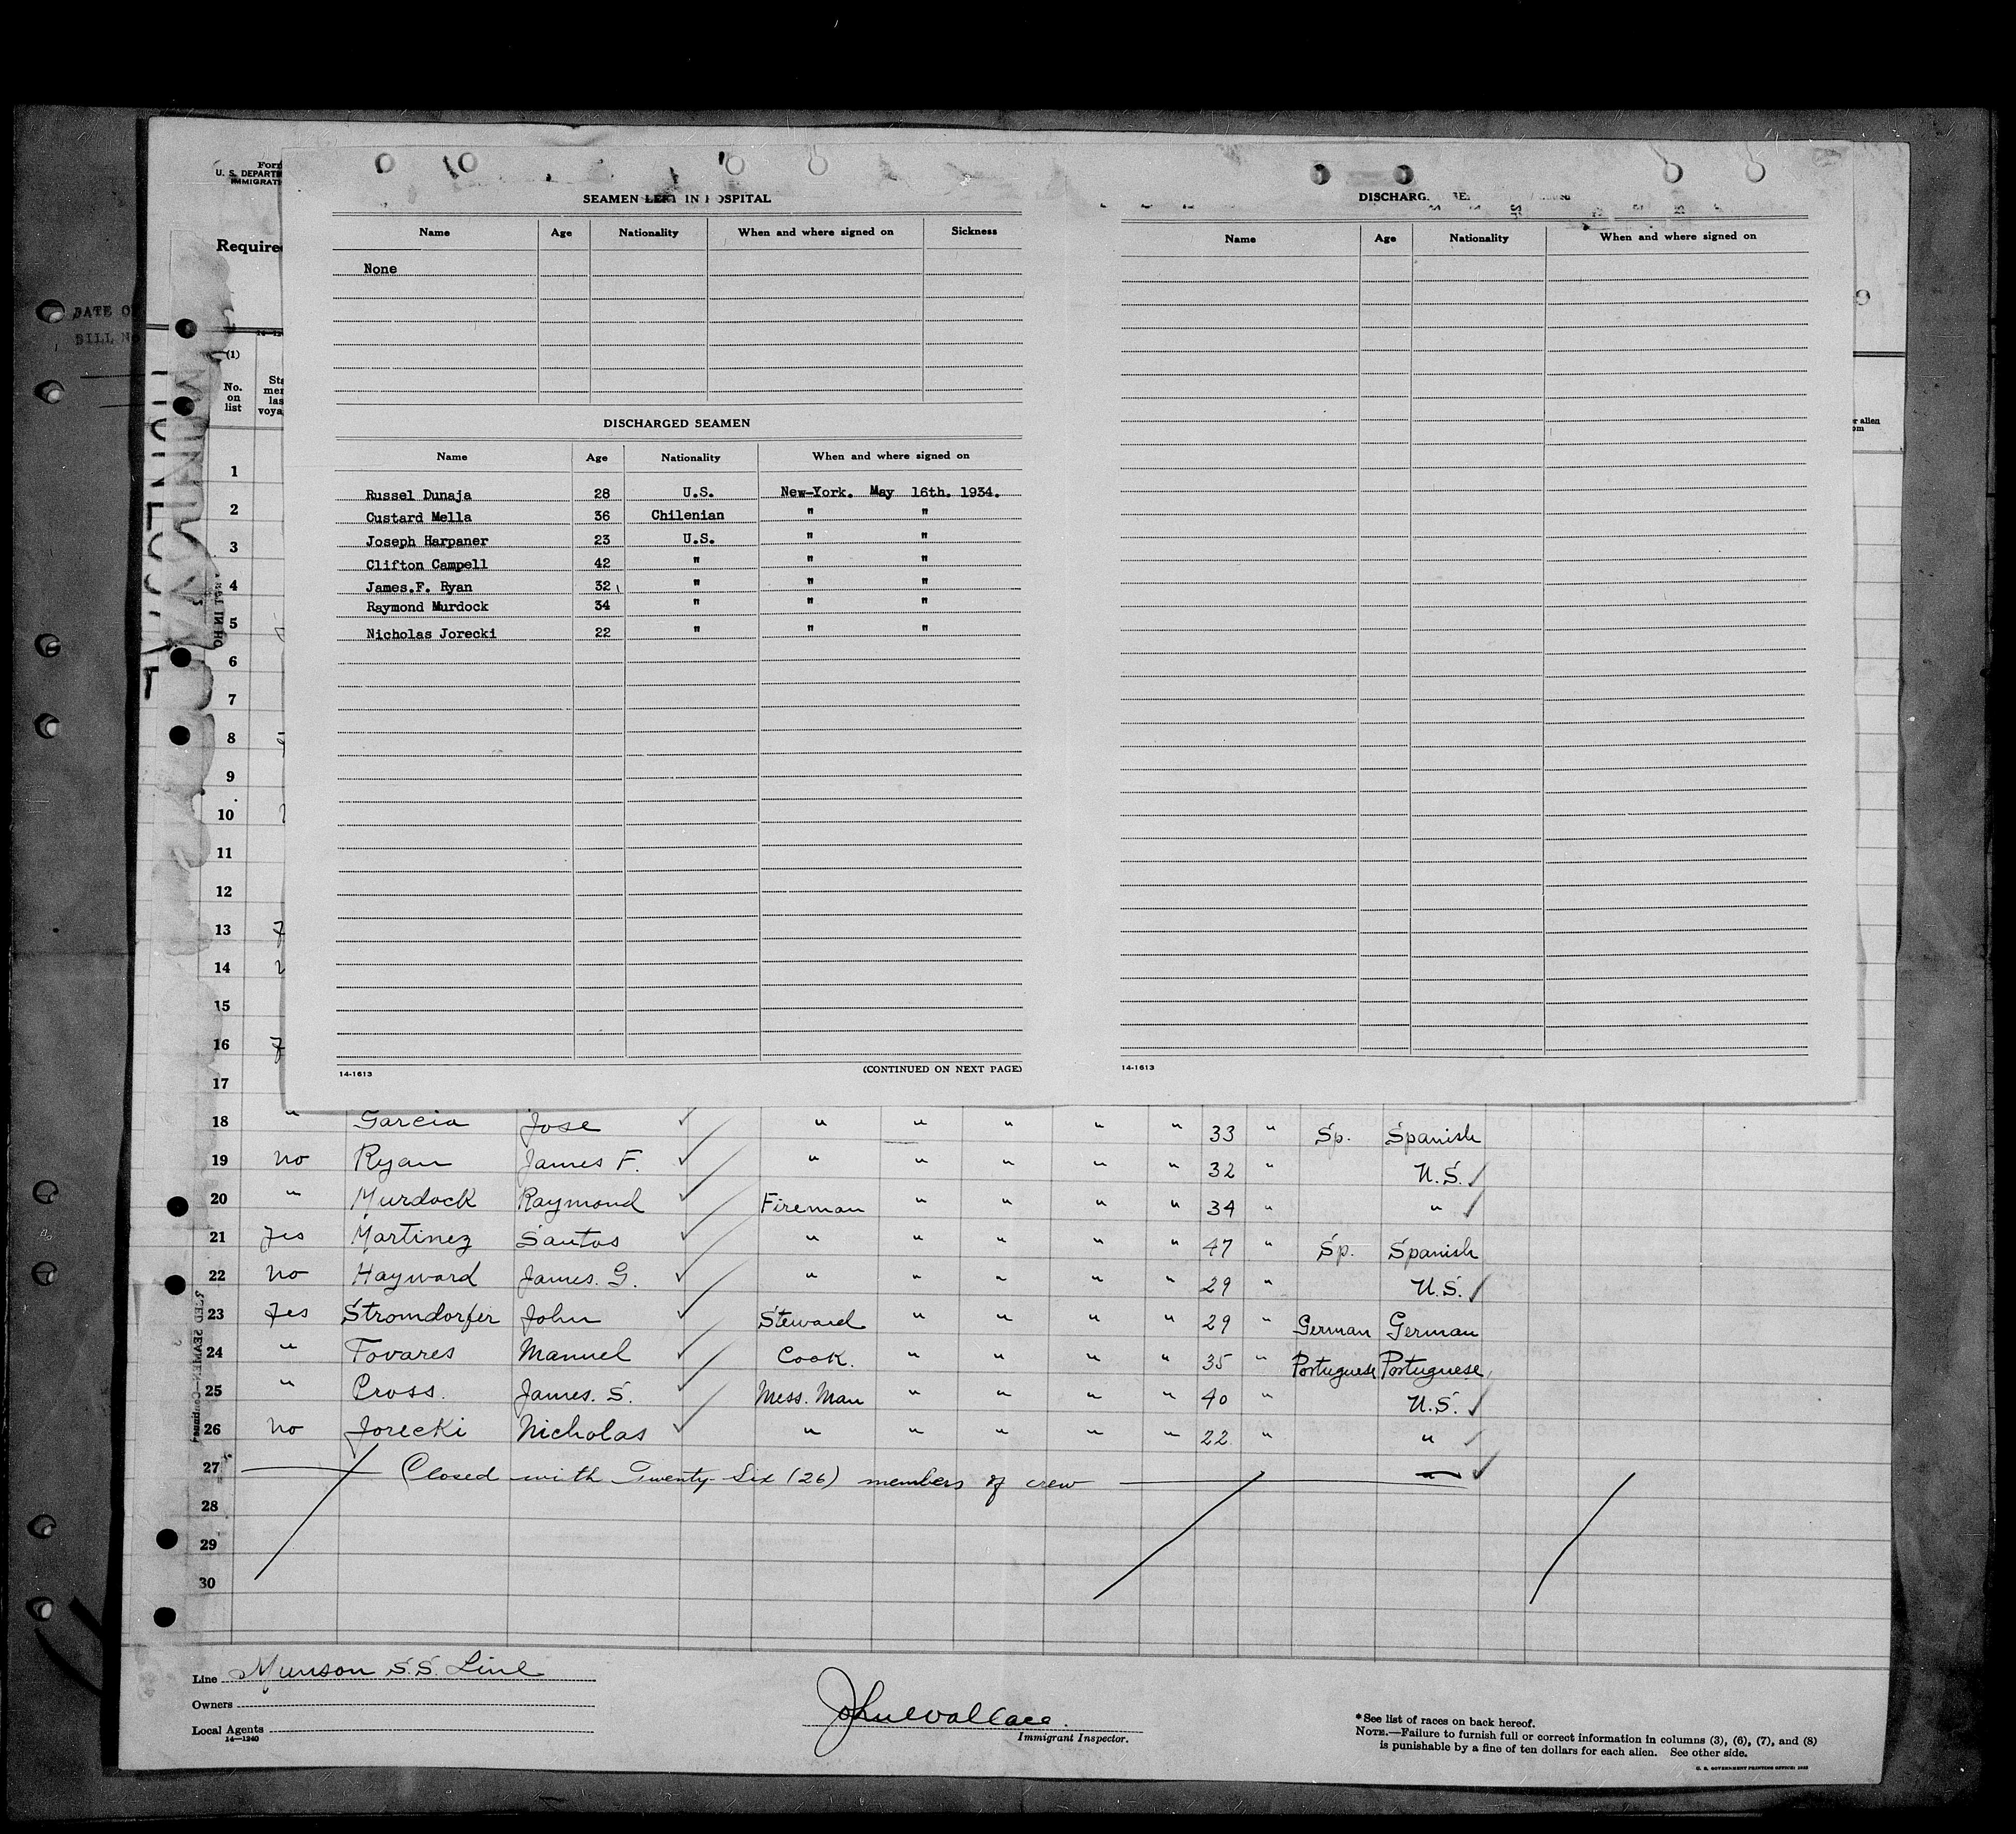 Form
U. S. DEPARTM
IMMIGRATI
Require
DATE OF
BILL No
SEAMEN LEFT IN HOSPITAL
Name Age Nationality When and where signed on Sickness
None
DISCHARGED SEAMEN
Name Age Nationality When and where signed on
Russel Dunaja 28 U.S. New-York. May 16th. 1934.
Custard Mella 36 Chilenian " "
Joseph Harpaner 23 U.S. " "
Clifton Campell 42 " " "
James.F. Ryan 32 " " "
Raymond Murdock 34 " " "
Nicholas Jorecki 22 " " "
14-1613 (CONTINUED ON NEXT PAGE)
DISCHARG
Name Age Nationality When and where signed on
14-1613
(1)
No. on list
1
2
3
4
5
6
7
8
9
10
11
12
13
14
15
16
17
18 " Garcia Jose ✓ " " " " " 33 " Sp. Spanish
19 No Ryan James F. ✓ " " " " " 32 " U.S. ✓
20 " Murdock Raymond ✓ Fireman " " " " 34 " " ✓
21 Yes Martinez Santos ✓ " " " " " 47 " Sp. Spanish
22 No Hayward James. G. ✓ " " " " " 29 " U.S. ✓
23 Yes Stromdorfer John ✓ Steward " " " " 29 " German German
24 " Tovares Manuel ✓ Cook. " " " " 35 " Portuguese Portuguese
25 " Cross. James. S. ✓ Mess. Man " " " " 40 " U.S. ✓
26 No Jorecki Nicholas ✓ " " " " " 22 " " ✓
27 Closed with Twenty-Six (26) members of crew ✓
28
29
30
Line Munson S.S. Line
Owners
Local Agents
14—1240
John Wallace.
Immigrant Inspector.
*See list of races on back hereof.
NOTE.—Failure to furnish full or correct information in columns (3), (6), (7), and (8)
is punishable by a fine of ten dollars for each alien. See other side.
U. S. GOVERNMENT PRINTING OFFICE: